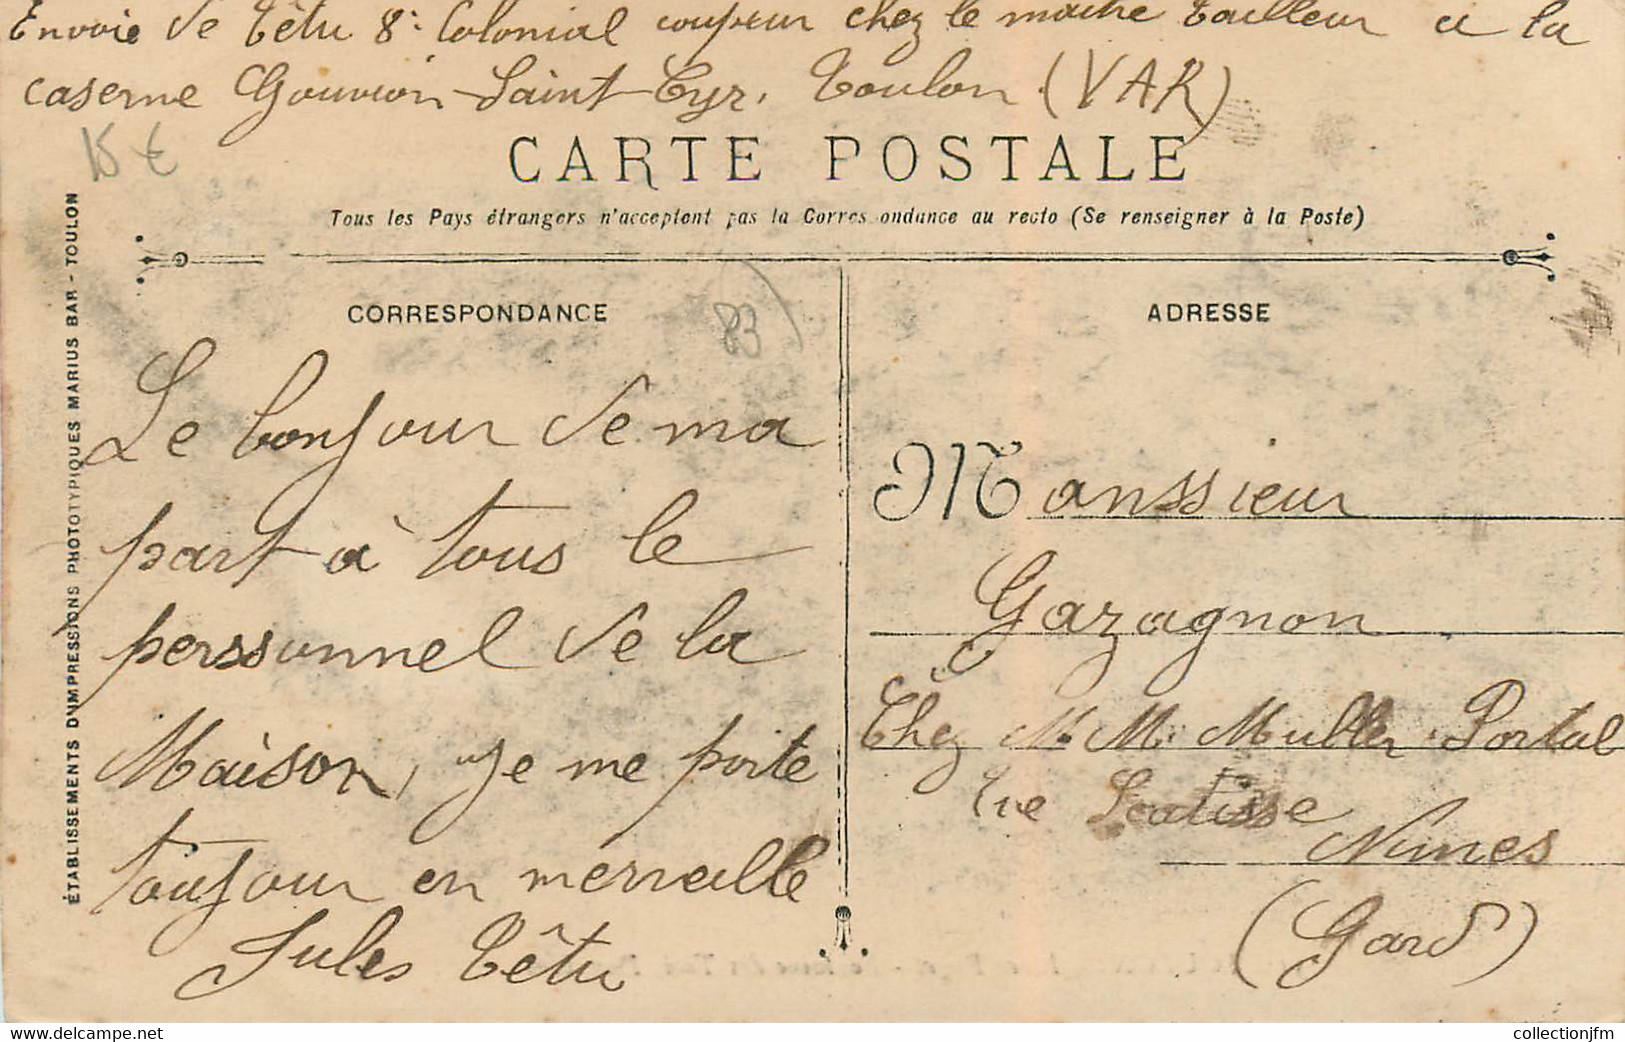 Envoie de Têtu 8e Colonial coupeur chez le maitre tailleur a la
caserne Gouvion-Saint-Cyr. Toulon (VAR)
15 €
CARTE POSTALE
Tous les Pays étrangers n'acceptent pas la Corres ondance au recto (Se renseigner à la Poste)
ÉTABLISSEMENTS D'IMPRESSIONS PHOTOTYPIQUES MARIUS BAR - TOULON
CORRESPONDANCE
83
Le bonjour de ma
part à tous le
perssonnel de la
Maison, je me porte
toujour en merveille
Jules Têtu
ADRESSE
Monssieur
Gazagnon
Chez M. M. Muller Portal
rue
Nimes
(Gard)
www.delcampe.net
collectionjfm